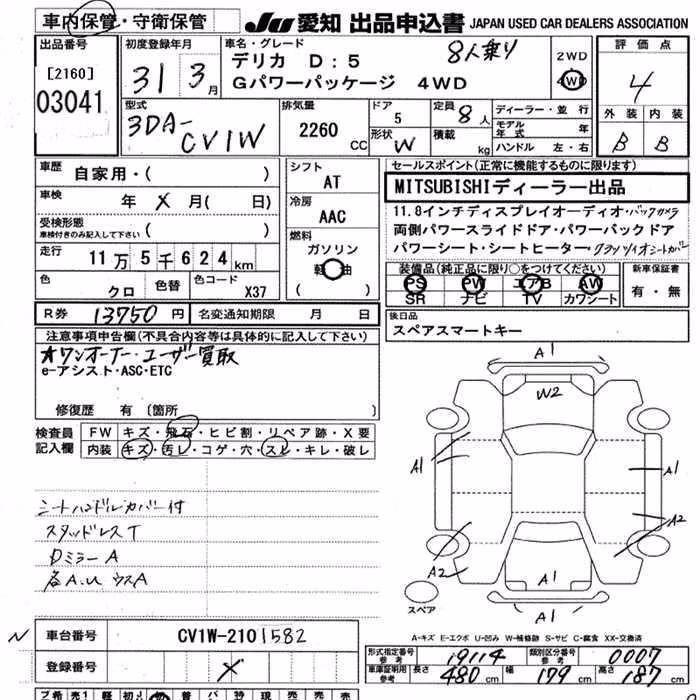 車内保管・守衛保管
JU 愛知 出品申込書 JAPAN USED CAR DEALERS ASSOCIATION
出品番号
[2160]
03041
初度登録年月
31 3月
車名・グレード
8人乗り
デリカ D:5
Gパワーパッケージ 4WD
2WD
4WD
評価点
4
外装 内装
B B
型式
3DA-
CV1W
排気量
2260 CC
ドア
5
形状 W
定員
8人
積載 kg
ディーラー・並行
モデル年式 年
ハンドル 左・右
車歴
自家用・( )
車検
年 X 月( 日)
受検形態
車検付きのみ記入して下さい ( )
走行
11万5千624km
色
クロ
色替
色コード
X37
シフト
AT
冷房
AAC
燃料
ガソリン
軽油
( )
セールスポイント(正常に機能するものに限ります)
MITSUBISHIディーラー出品
11.8インチディスプレイオーディオ・バックカメラ
両側パワースライドドア・パワーバックドア
パワーシート・シートヒーター・クラッツィオシートカバー
装備品(純正品に限り○をつけてください)
PS PW エアB AW
SR ナビ TV カワシート
新車保証書
有・無
R券 13750円 名変通知期限 月 日
後日品
スペアスマートキー
注意事項申告欄(不具合内容等は具体的に記入して下さい)
★ワンオーナー・ユーザー買取
e-アシスト・ASC・ETC
修復歴 有 〔箇所 〕
検査員
記入欄
FW キズ・飛石・ヒビ割・リペア跡・X要
内装 キズ・汚レ・コゲ・穴・スレ・キレ・破レ
シートハンドルカバー付
スタッドレスT
Dミラー A
各A.U ウスA
A1
W2
A1
A1
A2
A2
A1
A1
スペア
A-キズ E-エクボ U-凹み W-補修跡 S-サビ C-腐食 XX-交換済
N
車台番号 CV1W-2101582
登録番号 X
形式指定番号 参考 19114
類別区分番号 参考 0007
車庫証明用 参考 長さ 480cm 幅 179cm 高さ 187cm